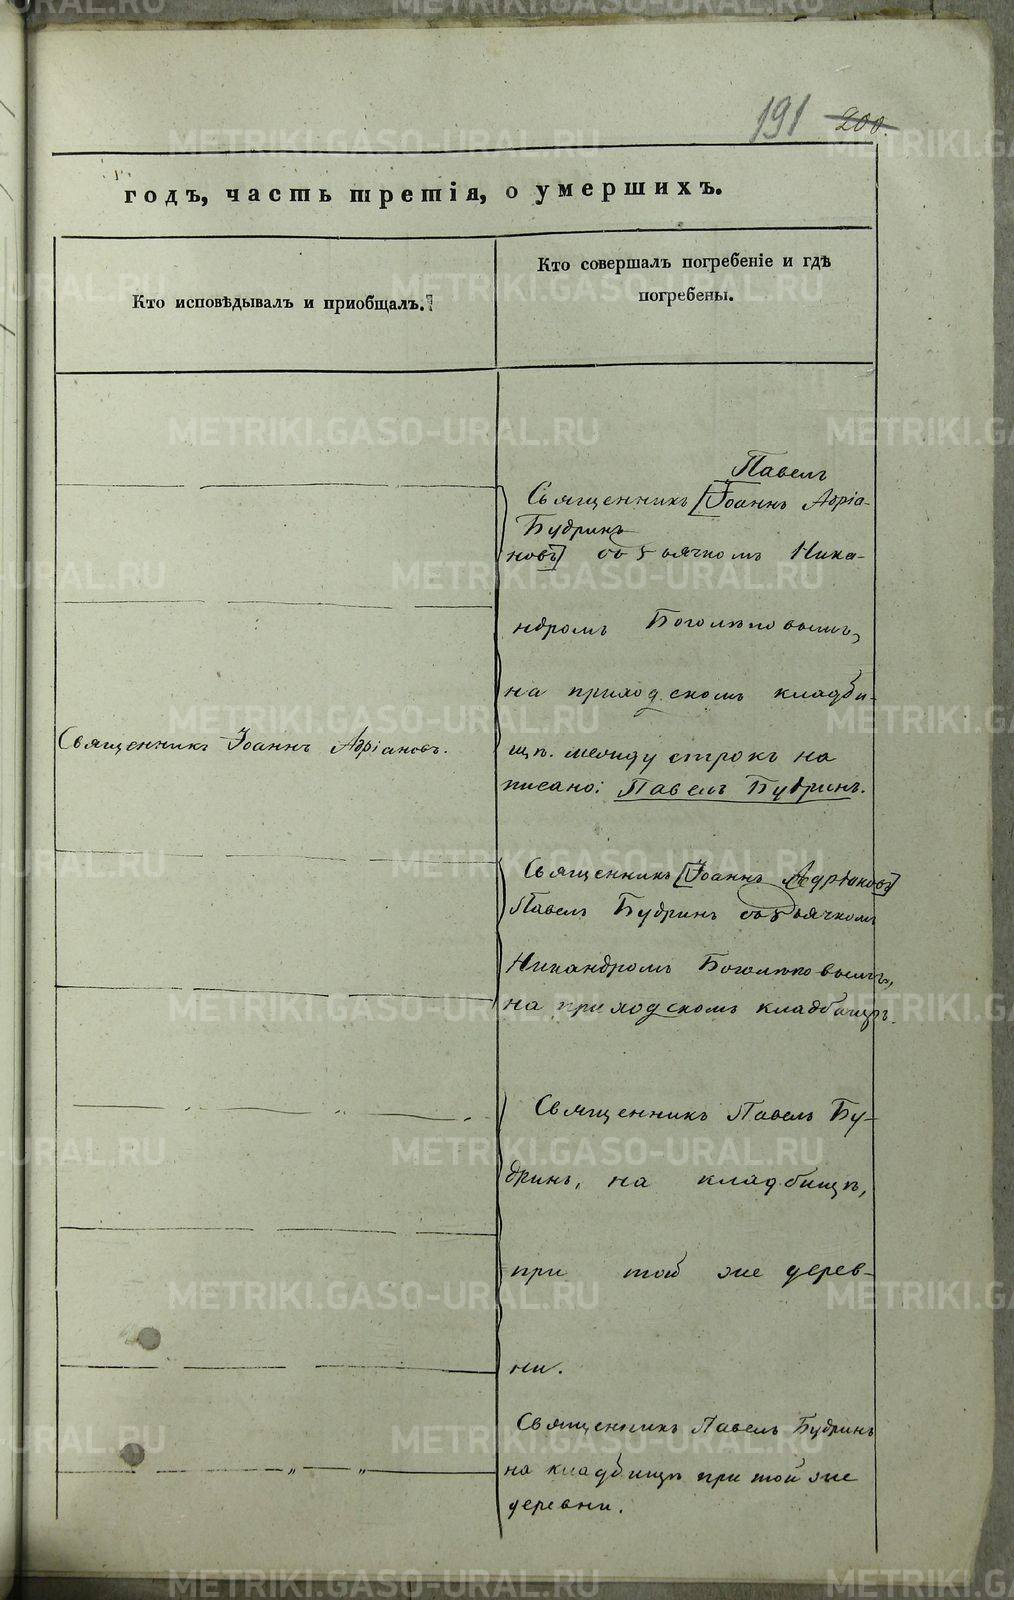 191 200.
годъ, часть третія, о умершихъ.
Кто исповѣдывалъ и приобщалъ.
Кто совершалъ погребеніе и гдѣ
погребены.
Павелъ
Священникъ [Іоаннъ Адріа-
Будринъ
новъ] съ дьячкомъ Ника-
ндромъ Боголѣповымъ,
на приходскомъ кладби-
Священникъ Іоаннъ Адріановъ.
щѣ. между строкъ на
писано: Павелъ Будринъ.
Священникъ [Іоаннъ
Павелъ Будринъ съ дьячкомъ
Никандромъ Боголѣповымъ,
на приходскомъ кладбищѣ.
Священникъ Павелъ Бу-
дринъ, на кладбищѣ,
при той же дерев-
ни.
Священникъ Павелъ Будринъ
на кладбищѣ при той же
деревни.
METRIKI.GASO-URAL.RU